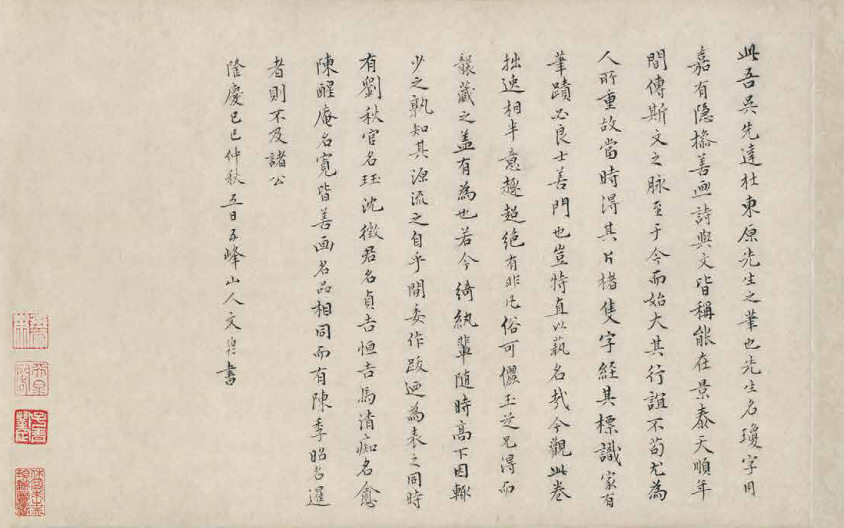 此吾吳先達杜東原先生之筆也先生名瓊字用
嘉有隱操善画詩與文皆稱能在景泰天順年
間傳斯文之脉至于今而始大其行誼不苟尤為
人所重故當時得其片楮隻字經其標識家有
筆蹟必良士善門也豈特直以蓺名哉今觀此卷
拙逸相半意趣超絶有非凡俗可儷玉芝兄得而
襲藏之盖有為也若今綺紈輩隨時高下因輒
少之孰知其源流之自乎間委作跋廼為表之同時
有劉秋官名珏沈徵君名貞吉恒吉馬清痴名愈
陳醒庵名寬皆善画名品相同而有陳季昭名暹
者則不及諸公
隆慶己巳仲秋五日五峰山人文伯仁書